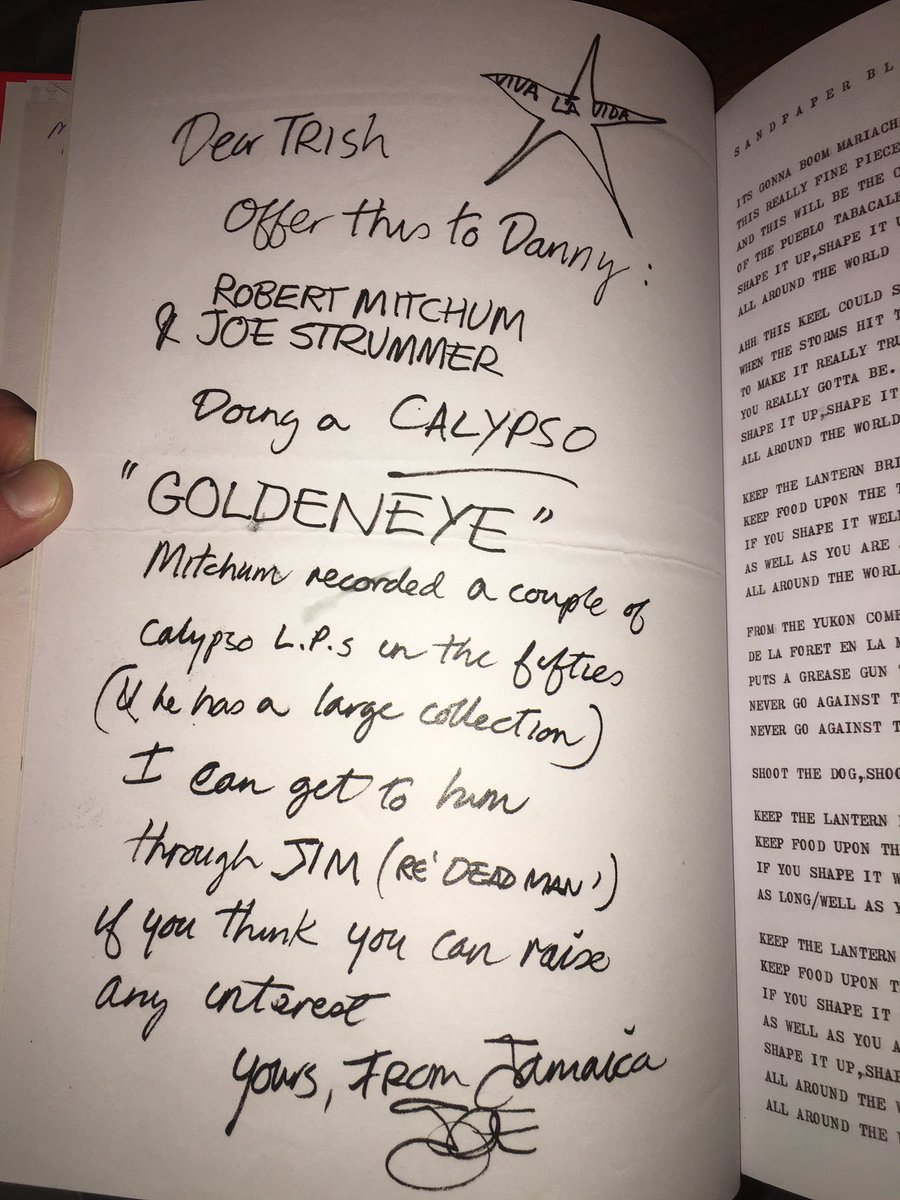 VIVA LA VIDA
Dear TRISH
Offer this to Danny:
ROBERT MITCHUM
& JOE STRUMMER
Doing a CALYPSO
"GOLDENEYE"
Mitchum recorded a couple of
calypso L.P.s in the fifties
(& he has a large collection)
I can get to him
through JIM (RE 'DEAD MAN')
if you think you can raise
any interest
yours, FROM Jamaica
JOE
SANDPAPER BL
ITS GONNA BOOM MARIACH
THIS REALLY FINE PIECE
AND THIS WILL BE THE C
OF THE PUEBLO TABACALE
SHAPE IT UP,SHAPE IT U
ALL AROUND THE WORLD
AHH THIS KEEL COULD S
WHEN THE STORMS HIT T
TO MAKE IT REALLY TRU
YOU REALLY GOTTA BE.
SHAPE IT UP,SHAPE IT
ALL AROUND THE WORLD
KEEP THE LANTERN BRI
KEEP FOOD UPON THE T
IF YOU SHAPE IT WELL
AS WELL AS YOU ARE
ALL AROUND THE WORL
FROM THE YUKON COME
DE LA FORET EN LA M
PUTS A GREASE GUN
NEVER GO AGAINST T
NEVER GO AGAINST T
SHOOT THE DOG,SHOO
KEEP THE LANTERN
KEEP FOOD UPON TH
IF YOU SHAPE IT W
AS LONG/WELL AS Y
KEEP THE LANTERN
KEEP FOOD UPON T
IF YOU SHAPE IT
AS WELL AS YOU A
SHAPE IT UP,SHAP
ALL AROUND THE W
ALL AROUND THE W